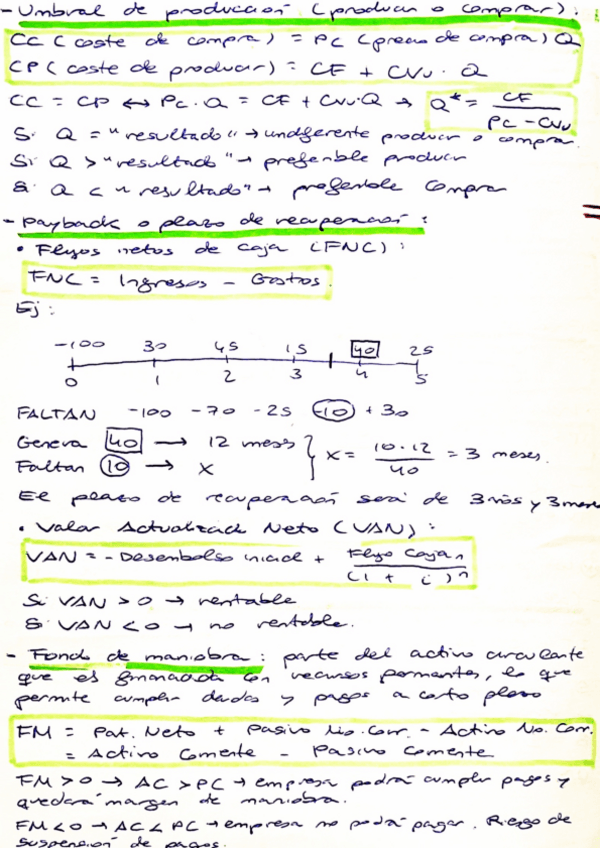 - Umbral de producción (producir o comprar):
CC (coste de compra) = Pc (precio de compra) Q
CP (coste de producir) = CF + CVu · Q
CC = CP ↔ Pc · Q = CF + CVu · Q → Q* = CF / (Pc - CVu)
Si Q = "resultado" → indiferente producir o comprar.
Si Q > "resultado" → preferible producir
Si Q < "resultado" → preferible comprar
- Payback o plazo de recuperación:
• Flujos netos de caja (FNC):
FNC = Ingresos - Gastos.
Ej:
-100 30 45 15 40 25
0 1 2 3 4 5
FALTAN -100 -70 -25 -10 +30
Genera 40 → 12 meses
Faltan 10 → x
x = 10 · 12 / 40 = 3 meses.
El plazo de recuperación será de 3 años y 3 meses
• Valor Actualizado Neto (VAN):
VAN = - Desembolso inicial + Flujo Caja n / (1 + i)^n
Si VAN > 0 → rentable
Si VAN < 0 → no rentable.
- Fondo de maniobra: parte del activo circulante
que es financiada con recursos permantes, lo que
permite cumplir deudas y pagos a corto plazo
FM = Pat. Neto + Pasivo No. Corr. - Activo No. Corr.
= Activo Corriente - Pasivo Corriente
FM > 0 → AC > PC → empresa podrá cumplir pagos y
quedará margen de maniobra.
FM < 0 → AC < PC → empresa no podrá pagar. Riesgo de
suspensión de pagos.